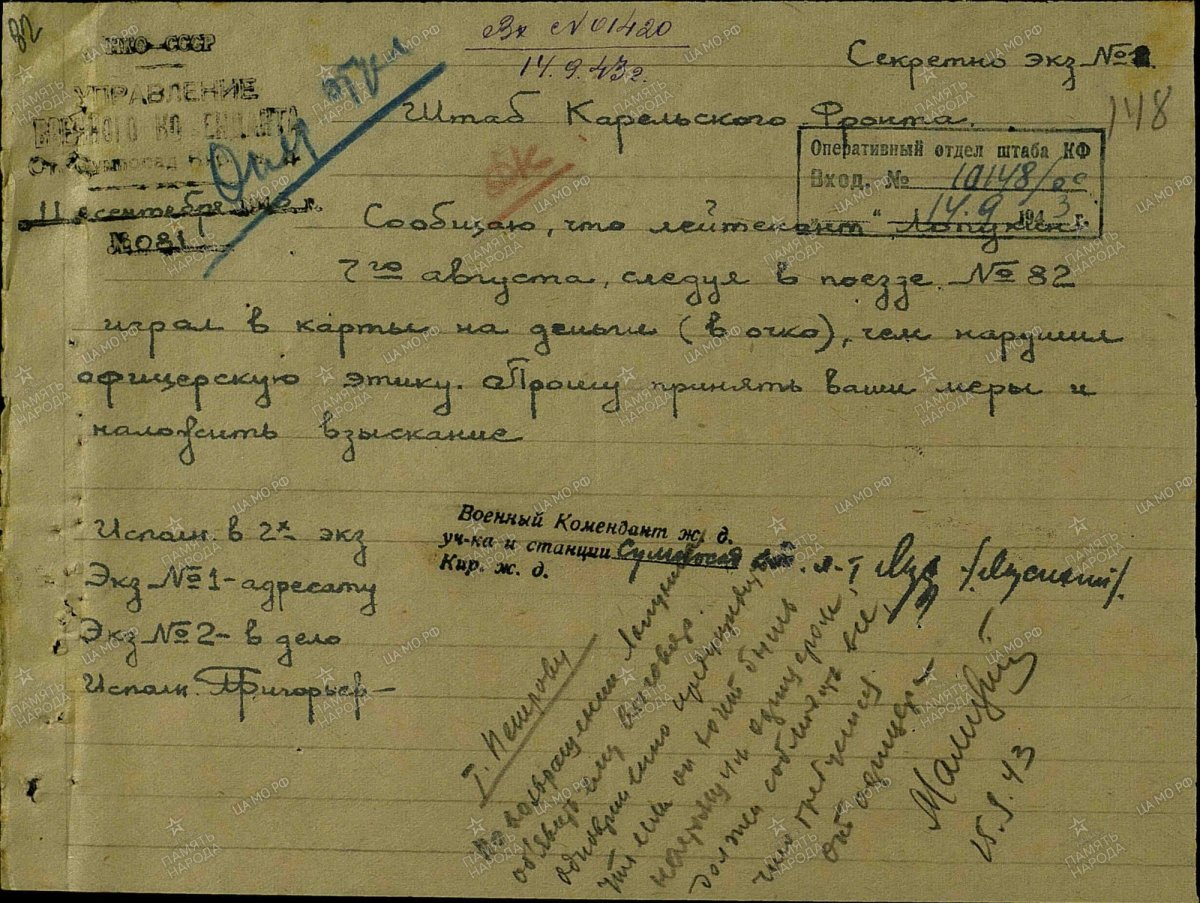 82
НКО СССР
УПРАВЛЕНИЕ
ВОЕННОГО КОМЕНДАНТА
11 сентября
№ 081
Вх № 01420
14.9.43г.
Секретно экз №
148
Штаб Карельского Фронта.
Оперативный отдел штаба КФ
Вход. № 10148/
14.9 1943 г.
Сообщаю, что лейтенант Лопухин
7го августа, следуя в поезде №82
играл в карты на деньги (в очко), чем нарушил
офицерскую этику. Прошу принять ваши меры и
наложить взыскание
Военный Комендант ж. д.
уч-ка и станции Сумпосад
Кир. ж. д.
Исполн. в 2х экз
Экз №1 - адресату
Экз №2 - в дело
Исполн. Григорьев
Т. Петрову
По возвращении Лопухина
объявить ему выговор.
одновременно предупредить
что если он хочет быть
настоящим офицером,
должен соблюдать все,
что требуется
от офицера
15.9.43